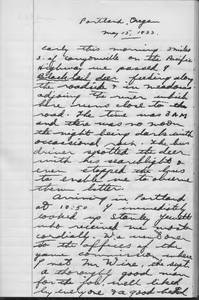 Portland, Oregon
May 15, 1933.
Early this morning 5 miles
S. of Canyonville on the Pacific
Highway we passed 8
Black tail deer feeding along
the roadside & in meadows
along the river which
here runs close to the
road. The time was 3 AM
and there was no moon
the night being dark with
occasional rain. The bus
driver spotted the deer
with his searchlight &
even stopped the bus
to enable me to observe
them better.
Arriving in Portland
at 10:50 I immediately
looked up Stanley Jewett
who received me most
cordially. We went down
to the offices of the
game commission where
I met Mr. Wire, the supt.
a thoroughly good man
for the job, well liked
by everyone & a good